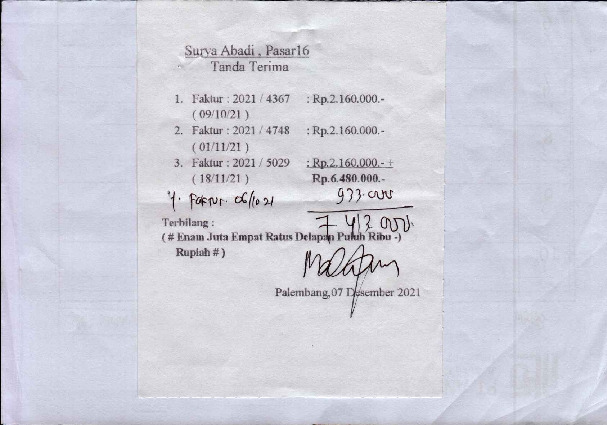 Surya Abadi , Pasar16
Tanda Terima
1. Faktur : 2021 / 4367 : Rp.2.160.000.-
( 09/10/21 )
2. Faktur : 2021 / 4748 : Rp.2.160.000.-
( 01/11/21 )
3. Faktur : 2021 / 5029 : Rp.2.160.000.- +
( 18/11/21 ) Rp.6.480.000.-
Faktur 933.000
7 413.000
Terbilang :
( # Enam Juta Empat Ratus Delapan Puluh Ribu -)
Rupiah # )
Palembang,07 Desember 2021